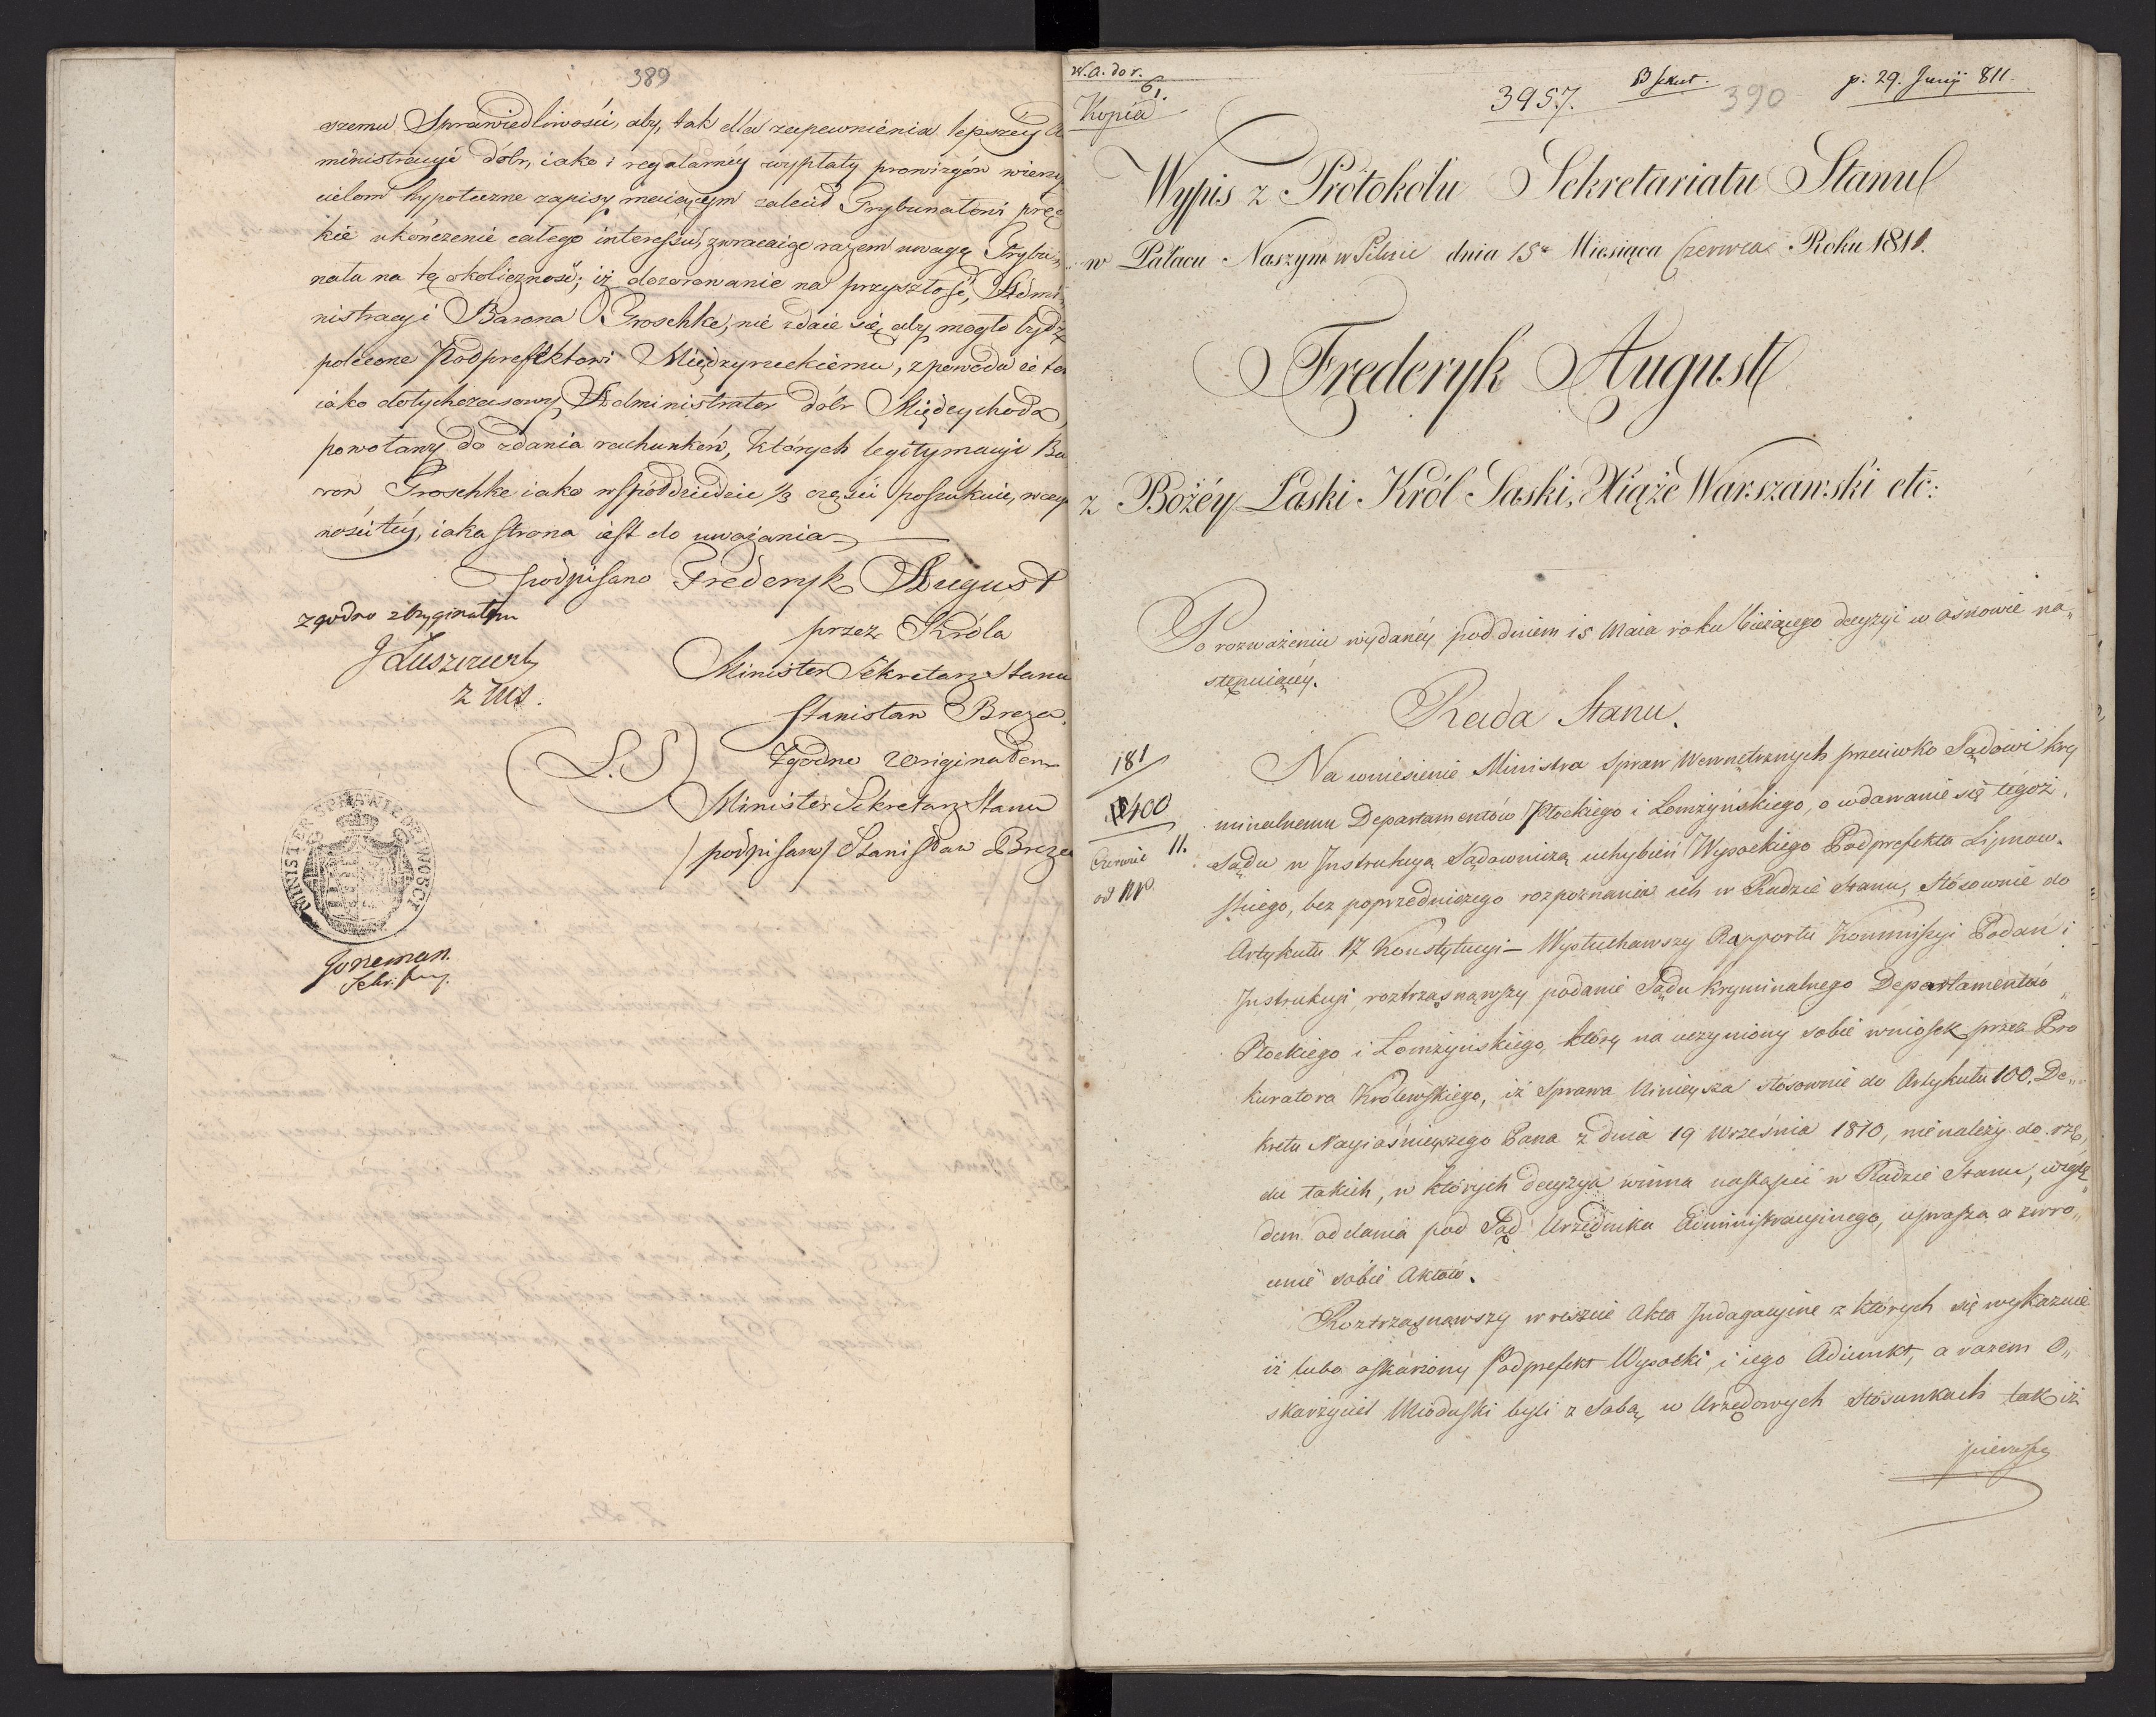 389
szemu Sprawiedliwości, aby, tak dla zapewnienia lepszey A
ministracyi dóbr, iako i regularnéy wypłaty prowizyów wierzy
cielom hypoteczne zapisy maiącym zalecił Trybunałowi pręd
kie ukończenie całego interessu, zwracaiąc razem uwagę Trybu„
nału na tę okoliczność; iż dozorowanie na przyszłość, Admi„
nistracyi Barona Troschke, nie zdaie się, aby mogło bydź
polecone Podprefektowi Międzyrzeckiemu, z powodu iż ten
iako dotychczasowy Administrator dóbr Międzychoda,
powołany do zdania rachunków, których legitymacyi Ba
ron Troschke iako współdziedzic 1/3 części poszukuie, w czyn
ności téy, iaka strona iest do uważania
podpisano Frederyk August
zgodno z Oryginałem
przez Króla
J Łuszczewski
Minister Sekretarz Stanu
z Ms.
Stanisław Breza.
(L.S)
Zgodno z Originałem
Minister Sekretarz Stanu
/podpisano/ Stanisław Breza
MINISTER SPRAWIEDLIWOSCI
Joneman.
Sekr. Jny.
W. A. do r.
61.
Kopia
3957.
B Sekret.
390
p. 29. Junij 811.
Wypis z Protokołu Sekretariatu Stanu
w Pałacu Naszym w Pilnie dnia 15º Miesiąca Czerwca Roku 1811.
Frederyk August
z Bożéy Łaski Król Saski, Xiąże Warszawski etc:
Po rozważeniu wydanéy pod dniem 15 Maia roku bieżącego decyzyi w osnowie na„
stępuiącéy.
Rada Stanu.
181
400
11.
Czerwie
od NP
Na wniesienie Ministra Spraw Wewnętrznych przeciwko Sądowi kry
minalnemu Departamentów Płockiego i Łomżyńskiego, o wdawanie się tegoż
Sądu w Instrukcyą Sądowniczą uchybień Wysockiego Podprefekta Lipnow„
skiego, bez poprzedniczego rozpoznania ich w Radzie Stanu, stosownie do
Artykułu 17 Konstytucyi – Wysłuchawszy Rapportu Kommissyi Podań i
Instrukcyi, roztrząsnąwszy podanie Sądu Kryminalnego Departamentów
Płockiego i Łomżyńskiego, który na uczyniony sobie wniosek przez Pro
kuratora Królewskiego, iż Sprawa Ninieysza stosownie do Artykułu 100. De„
kretu Nayiaśnieyszego Pana z dnia 19 Września 1810, nienależy do rzę„
du takich, w których decyzya winna nastąpić w Radzie Stanu, wzglę„
dem oddania pod Sąd Urzędnika Administracyinego, uprasza o zwró„
cenie sobie Aktów.
Roztrząsnąwszy wreszcie Akta Indagacyine z których się wyskazuie
iż lubo oskarżony Podprefekt Wysocki, i iego Adiunkt, a razem O„
skarżyciel Mioduski byli z Sobą w Urzędowych Stósunkach tak iż
pierwszy